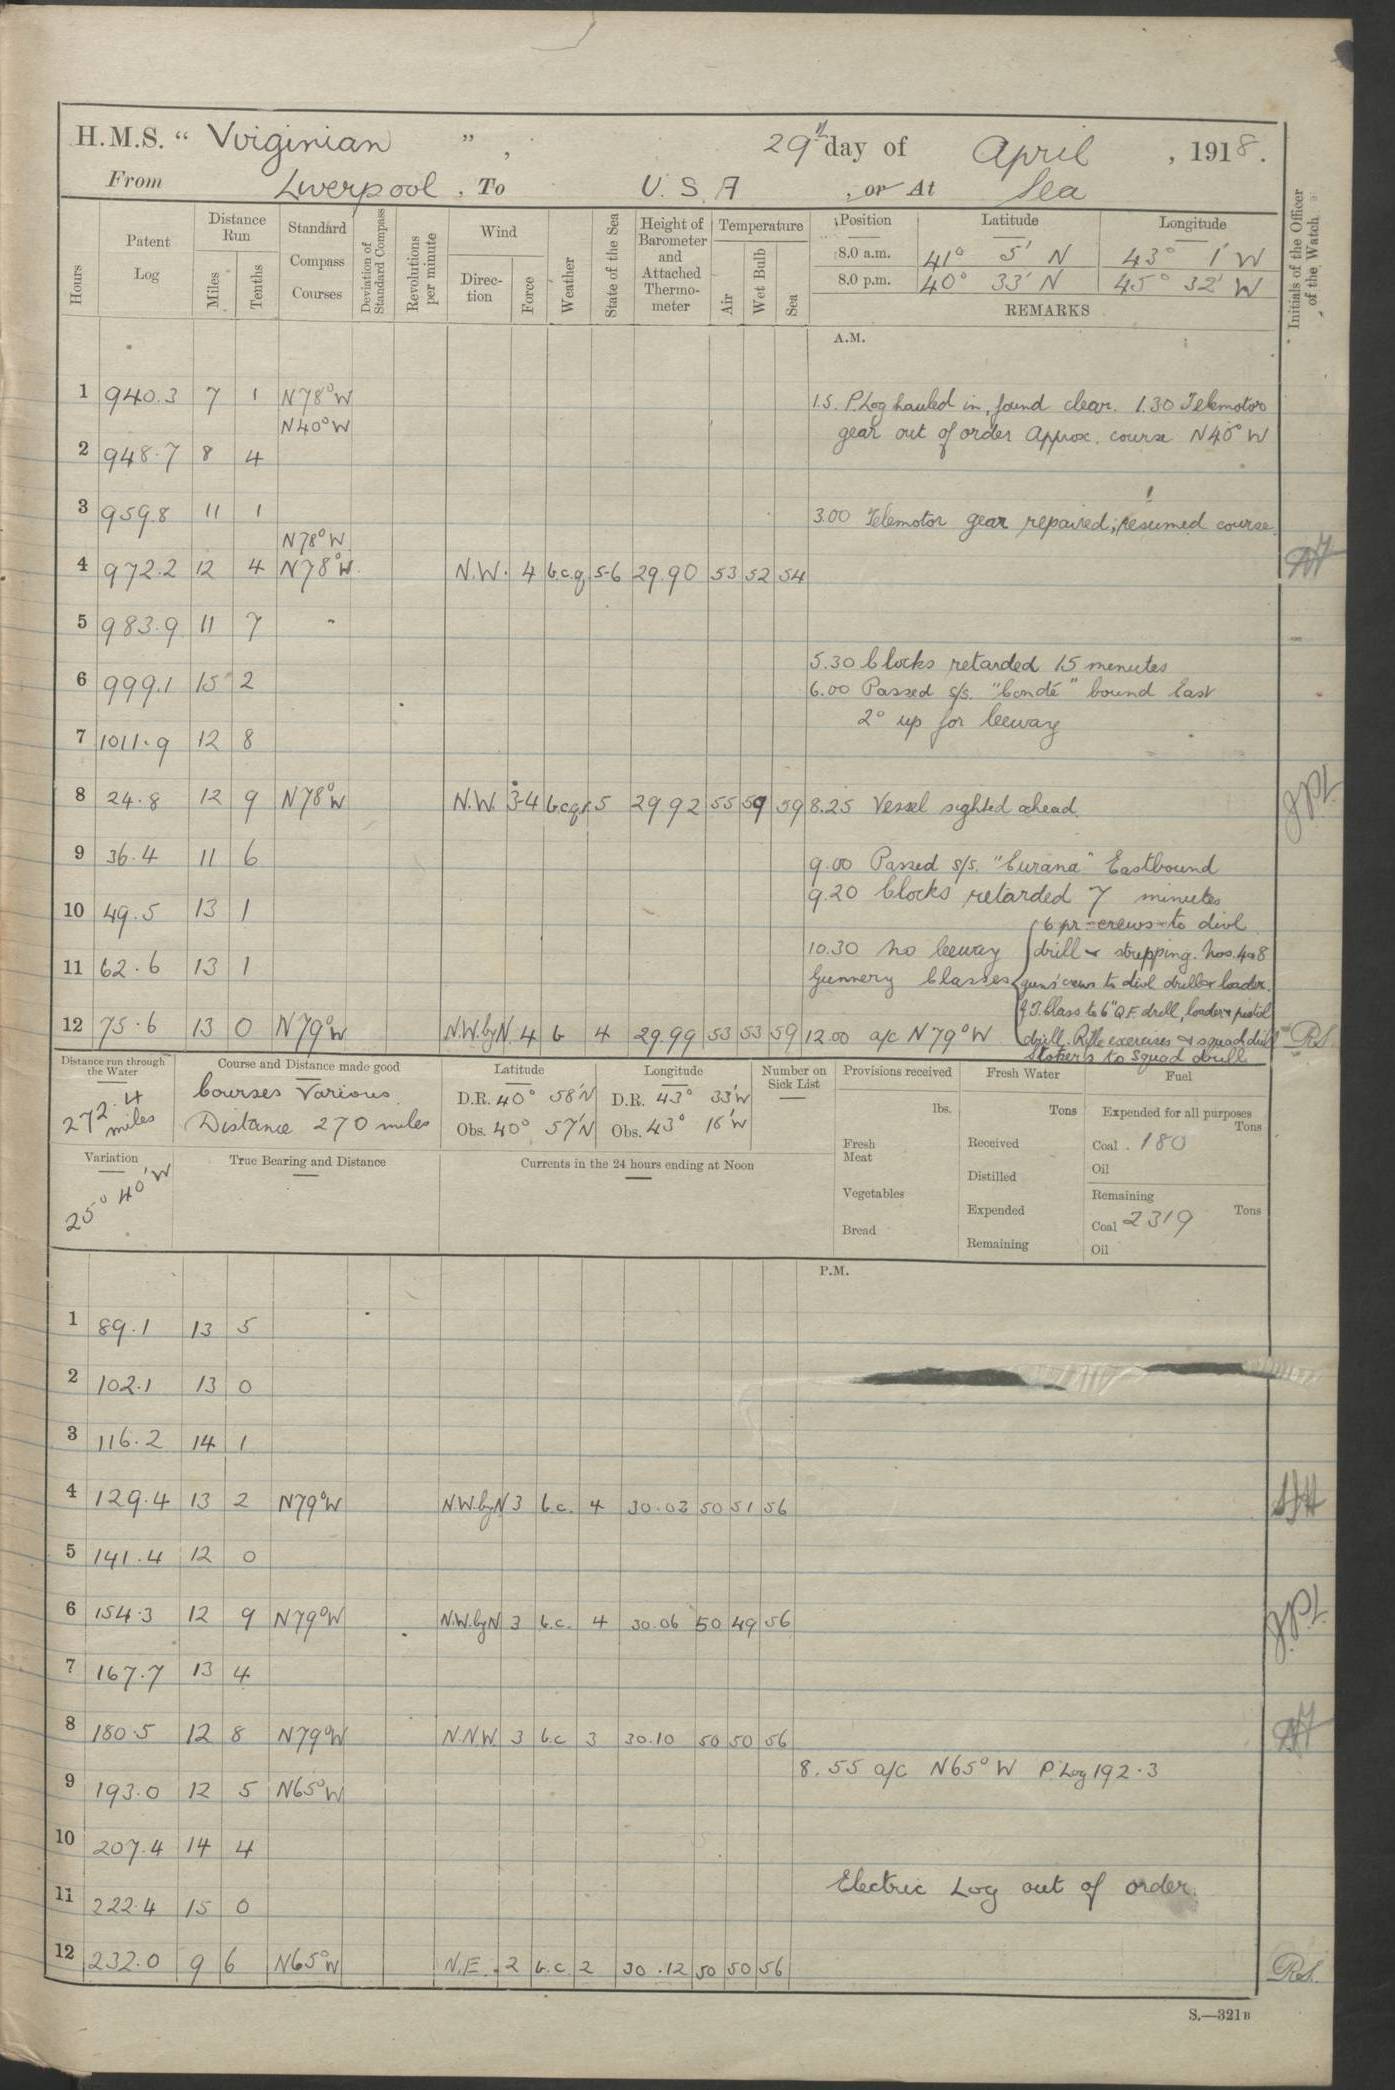 H.M.S. " Virginian " , 29th day of April , 1918.
From Liverpool , To U. S. A , or At Sea
Hours
Patent Log
Distance Run
Miles
Tenths
Standard Compass Courses
Deviation of Standard Compass
Revolutions per minute
Wind
Direction
Force
Weather
State of the Sea
Height of Barometer and Attached Thermometer
Temperature
Air
Wet Bulb
Sea
Position Latitude Longitude
8.0 a.m. 41° 5' N 43° 1' W
8.0 p.m. 40° 33' N 45° 32' W
REMARKS
Initials of the Officer of the Watch
A.M.
1 940.3 7 1 N78°W 1.5. P.Log hauled in, found clear. 1.30 Telemotor
N40°W gear out of order Approx. course N40° W
2 948.7 8 4
3 959.8 11 1 3.00 Telemotor gear repaired; resumed course
N78°W
4 972.2 12 4 N78°W. N.W. 4 b.c.q 5-6 29.90 53 52 54
5 983.9 11 7 "
5.30 Clocks retarded 15 minutes
6 999.1 15 2 6.00 Passed s/s. "Condé" bound East
2° up for leeway
7 1011.9 12 8
8 24.8 12 9 N78°W N.W. 3-4 b.c.q.r. 5 29.92 55 59 59 8.25 Vessel sighted ahead. J.P.L.
9 36.4 11 6 9.00 Passed s/s. "Curana" Eastbound
9.20 Clocks retarded 7 minutes
10 49.5 13 1 6 pr crews to divl
10.30 No leeway drill & stripping. Nos. 4 & 8
11 62.6 13 1 Gunnery Classes guns' crews to divl drill & loader.
G.T. Class to 6" Q.F. drill, loader & pistol
12 75.6 13 0 N79°W N.W.byN 4 b 4 29.99 53 53 59 12.00 a/c N79°W drill. Rifle exercises & squad drill R.S.
Stokers to Squad drill
Distance run through the Water
272.4 miles
Course and Distance made good
Courses Various.
Distance 270 miles
Latitude
D.R. 40° 58'N
Obs. 40° 57'N
Longitude
D.R. 43° 33'W
Obs. 43° 16'W
Number on Sick List
Provisions received
lbs.
Fresh Meat
Vegetables
Bread
Fresh Water
Tons
Received
Distilled
Expended
Remaining
Fuel
Expended for all purposes
Tons
Coal . 180
Oil
Remaining
Tons
Coal 2319
Oil
Variation
25° 40'W
True Bearing and Distance
Currents in the 24 hours ending at Noon
P.M.
1 89.1 13 5
2 102.1 13 0
3 116.2 14 1
4 129.4 13 2 N79°W N.W.byN 3 b.c. 4 30.03 50 51 56
5 141.4 12 0
6 154.3 12 9 N79°W N.W.byN 3 b.c. 4 30.06 50 49 56 J.P.L.
7 167.7 13 4
8 180.5 12 8 N79°W N.NW 3 b.c 3 30.10 50 50 56
8.55 a/c N65°W P.Log 192.3
9 193.0 12 5 N65°W
10 207.4 14 4
Electric Log out of order.
11 222.4 15 0
12 232.0 9 6 N65°W N.E. 2 b.c. 2 30.12 50 50 56 R.S.
S.—321B